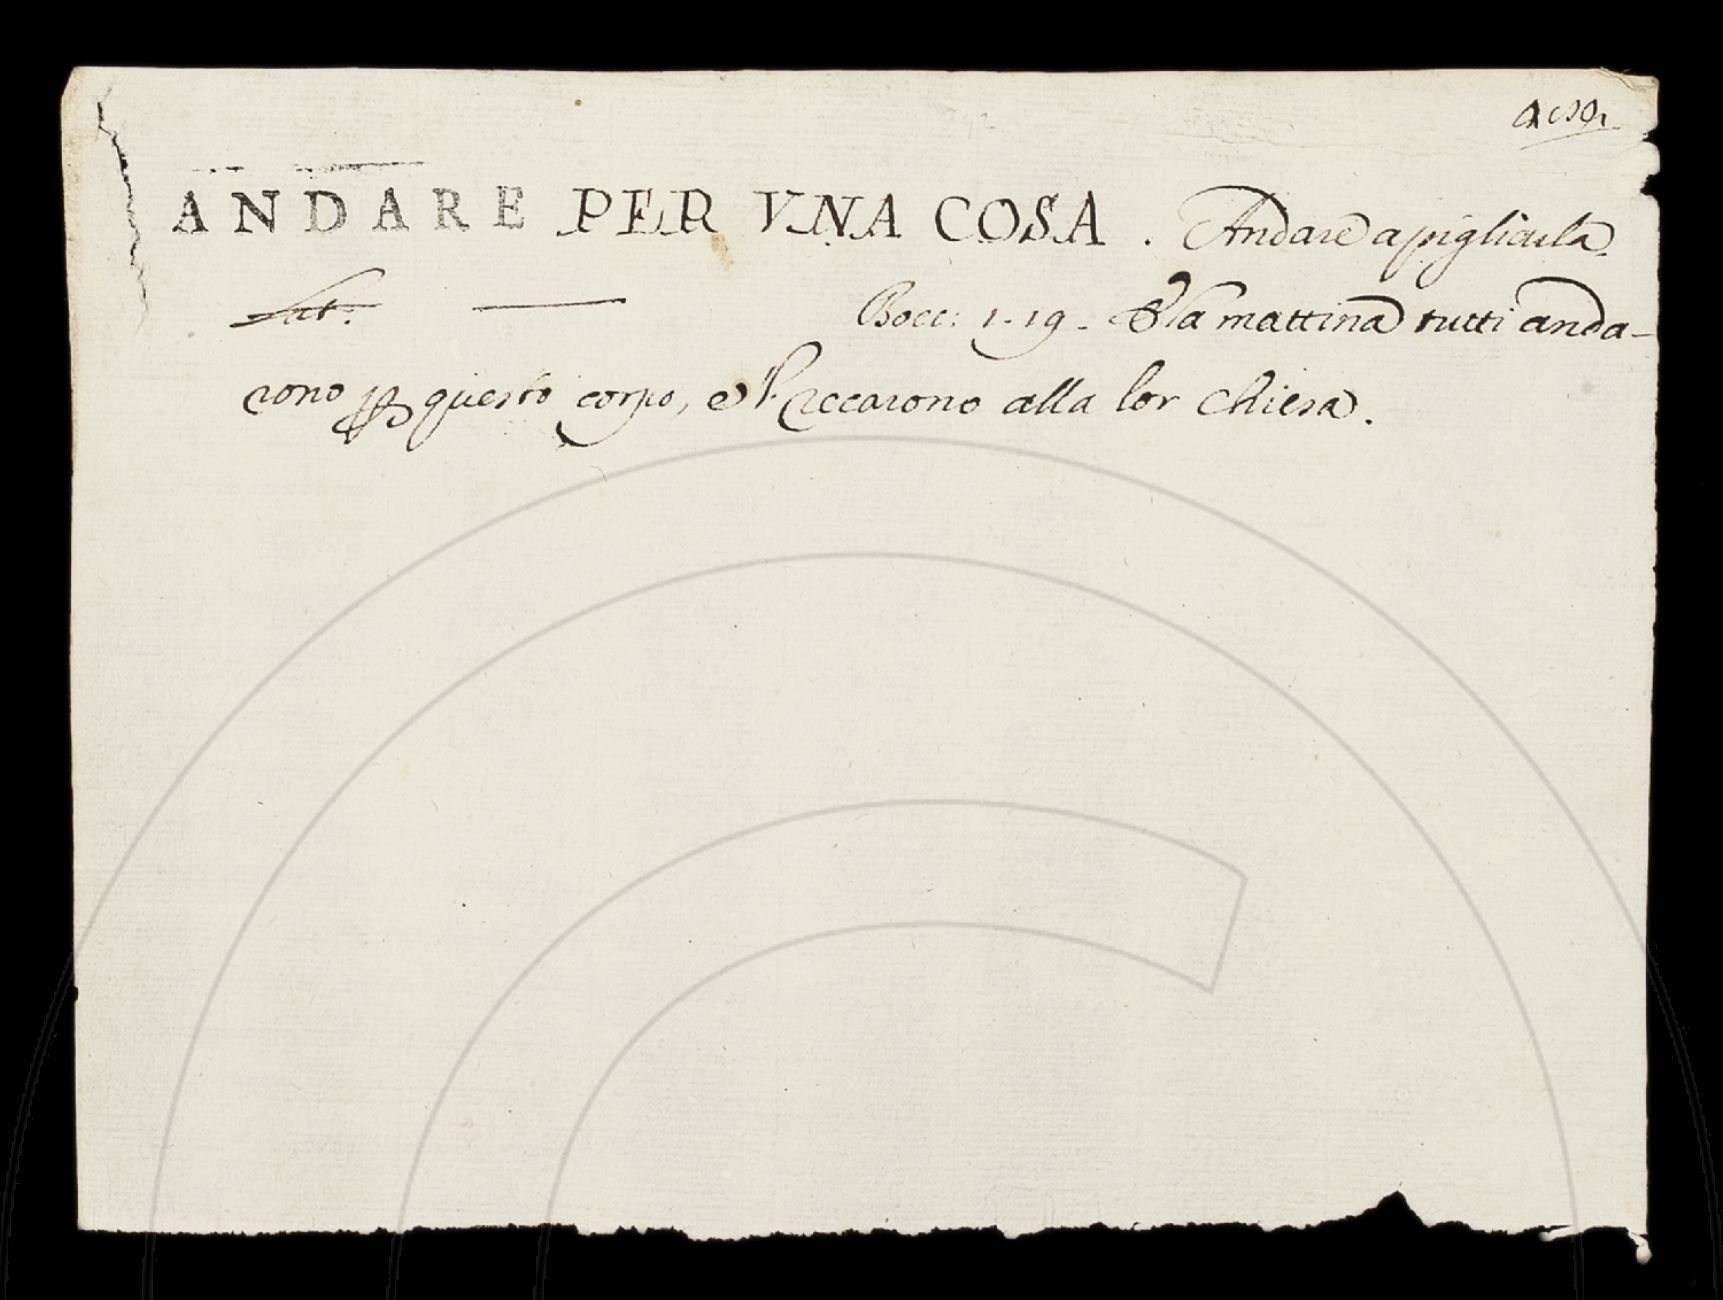 ANDARE PER VNA COSA. Andare a pigliarla.
Lat. Bocc: 1.19. E la mattina tutti anda-
rono p questo corpo, e recarono alla lor chiesa.